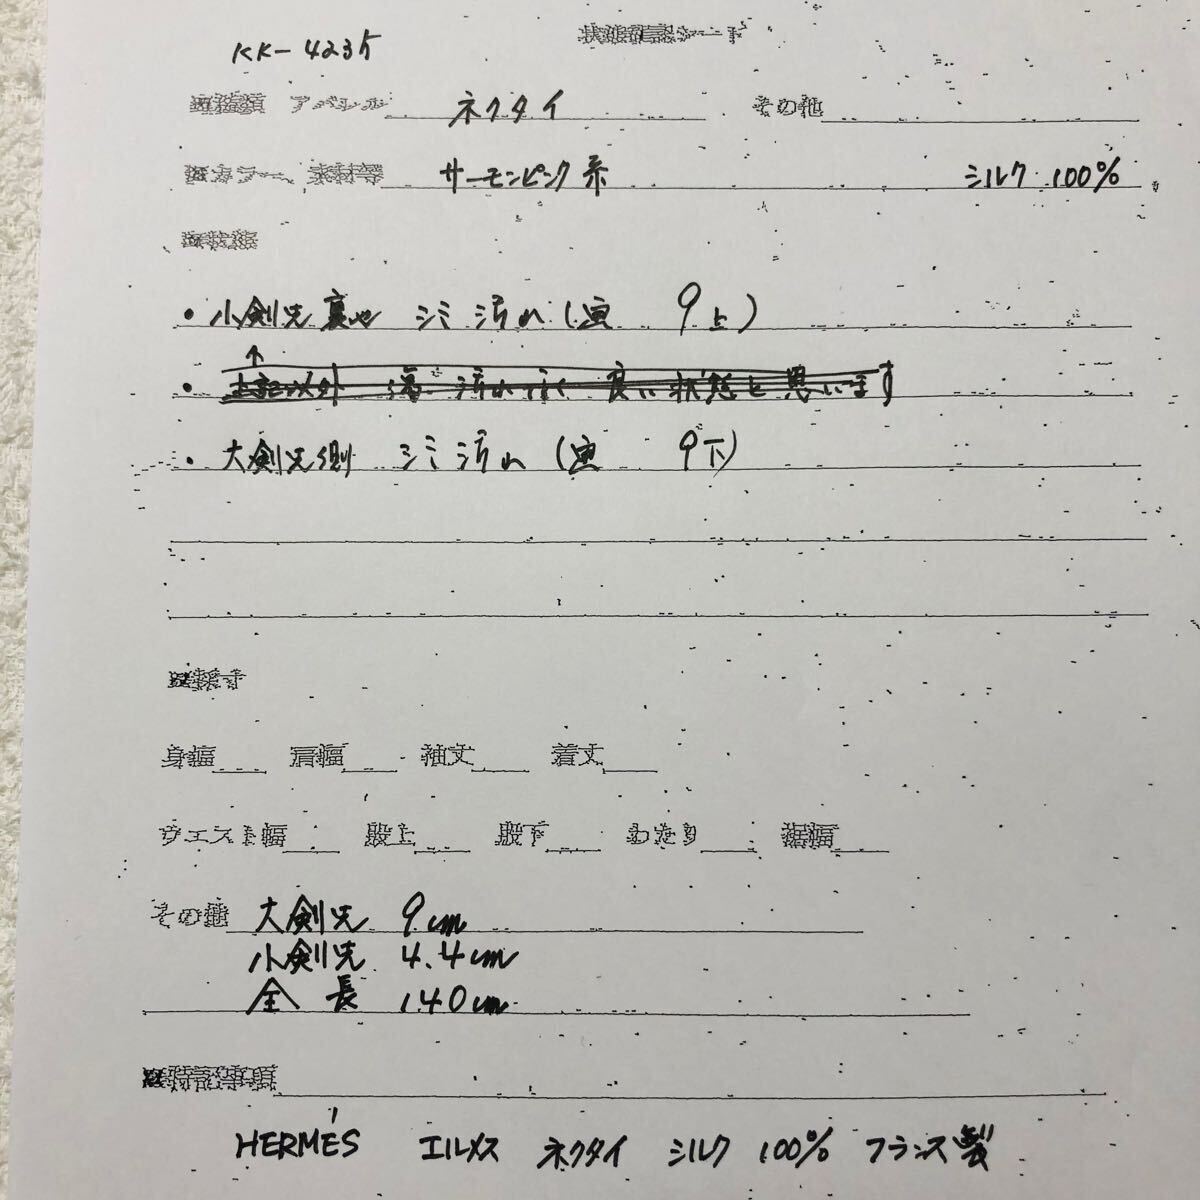 KK-4235
状態確認シート
アパレル ネクタイ その他
カラー、素材等 サーモンピンク系 シルク 100%
・小剣先 裏地 シミ 汚れ (画 9上)
↑
・上記以外 傷 汚れなく 良い状態と思います
・大剣先側 シミ 汚れ (画 9下)
採寸
身幅 肩幅 袖丈 着丈
ウエスト幅 股上 股下 わたり 裾幅
その他 大剣先 9cm
小剣先 4.4cm
全長 140cm
特記事項
HERMÉS エルメス ネクタイ シルク 100% フランス製